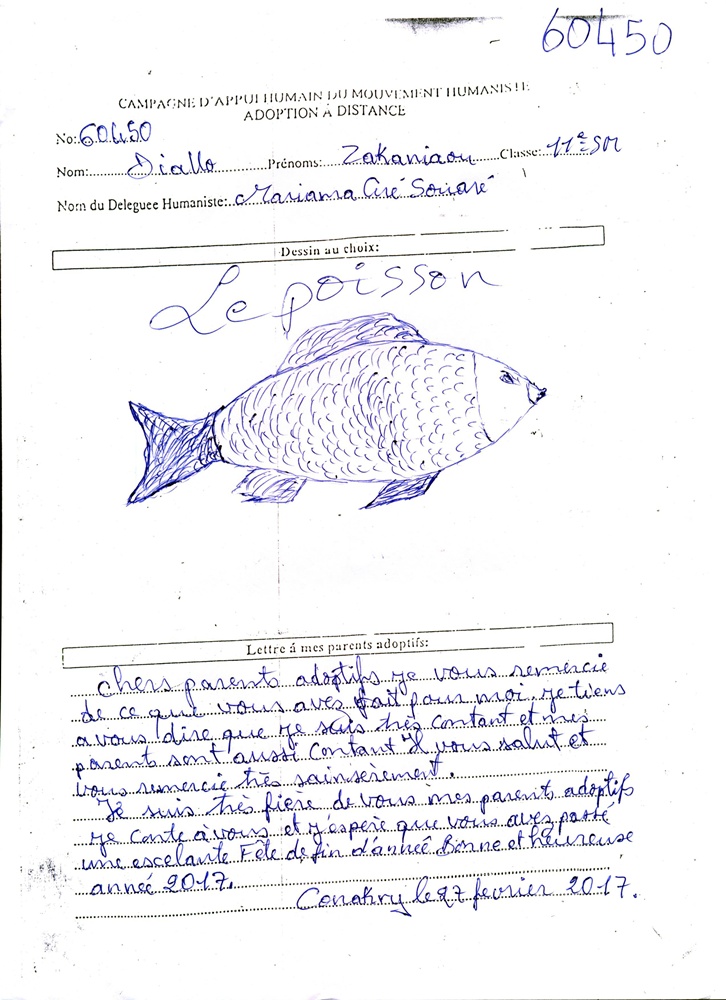 60450
CAMPAGNE D'APPUI HUMAIN DU MOUVEMENT HUMANISTE
ADOPTION À DISTANCE
No: 60450
Nom: Diallo Prénoms: Zakaniaou Classe: 11e SM
Nom du Deleguee Humaniste: Mariama Ciré Souaré
Dessin au choix:
Le poisson
Lettre á mes parents adoptifs:
chers parents adoptifs je vous remercie
de ce que vous avés fait pour moi. je tiens
a vous dire que je suis très contant et mes
parents sont aussi contant Il vous salut et
vous remercie très sainserement.
Je suis très fière de vous mes parents adoptifs
je conte à vous et j'espère que vous avés passé
une escelante Fête de fin d'année Bonne et heureuse
année 2017.
Conakry le 27 fevrier 2017.